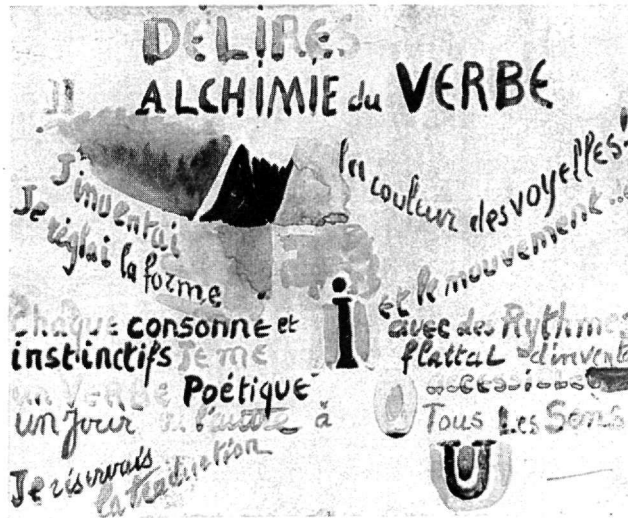 DÉLIRES
II
ALCHIMIE du VERBE
J'inventai
la couleur des voyelles!
Je réglai la forme
et le mouvement de
Chaque consonne et
i
avec des Rythmes
instinctifs Je me
flattai d'invente
un VERBE Poétique
accessible
un Jour ou l'autre à
Tous Les Sens
U
Je réservais
la traduction